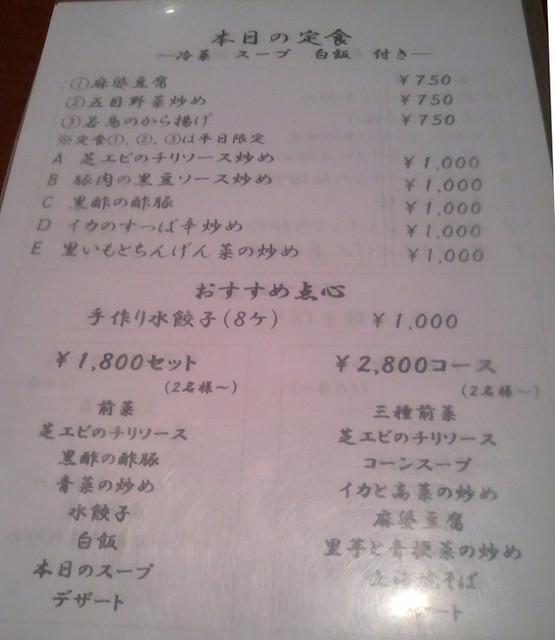 本日の定食
―冷菜 スープ 白飯 付き―
①麻婆豆腐 ¥750
②五目野菜炒め ¥750
③若鳥のから揚げ ¥750
※定食①、②、③は平日限定
A 芝エビのチリソース炒め ¥1,000
B 豚肉の黒豆ソース炒め ¥1,000
C 黒酢の酢豚 ¥1,000
D イカのすっぱ辛炒め ¥1,000
E 里いもとちんげん菜の炒め ¥1,000
おすすめ点心
手作り水餃子(8ケ) ¥1,000
¥1,800セット
(2名様～)
前菜
芝エビのチリソース
黒酢の酢豚
青菜の炒め
水餃子
白飯
本日のスープ
デザート
¥2,800コース
(2名様～)
三種前菜
芝エビのチリソース
コーンスープ
イカと高菜の炒め
麻婆豆腐
里芋と青梗菜の炒め
焼そば
ート